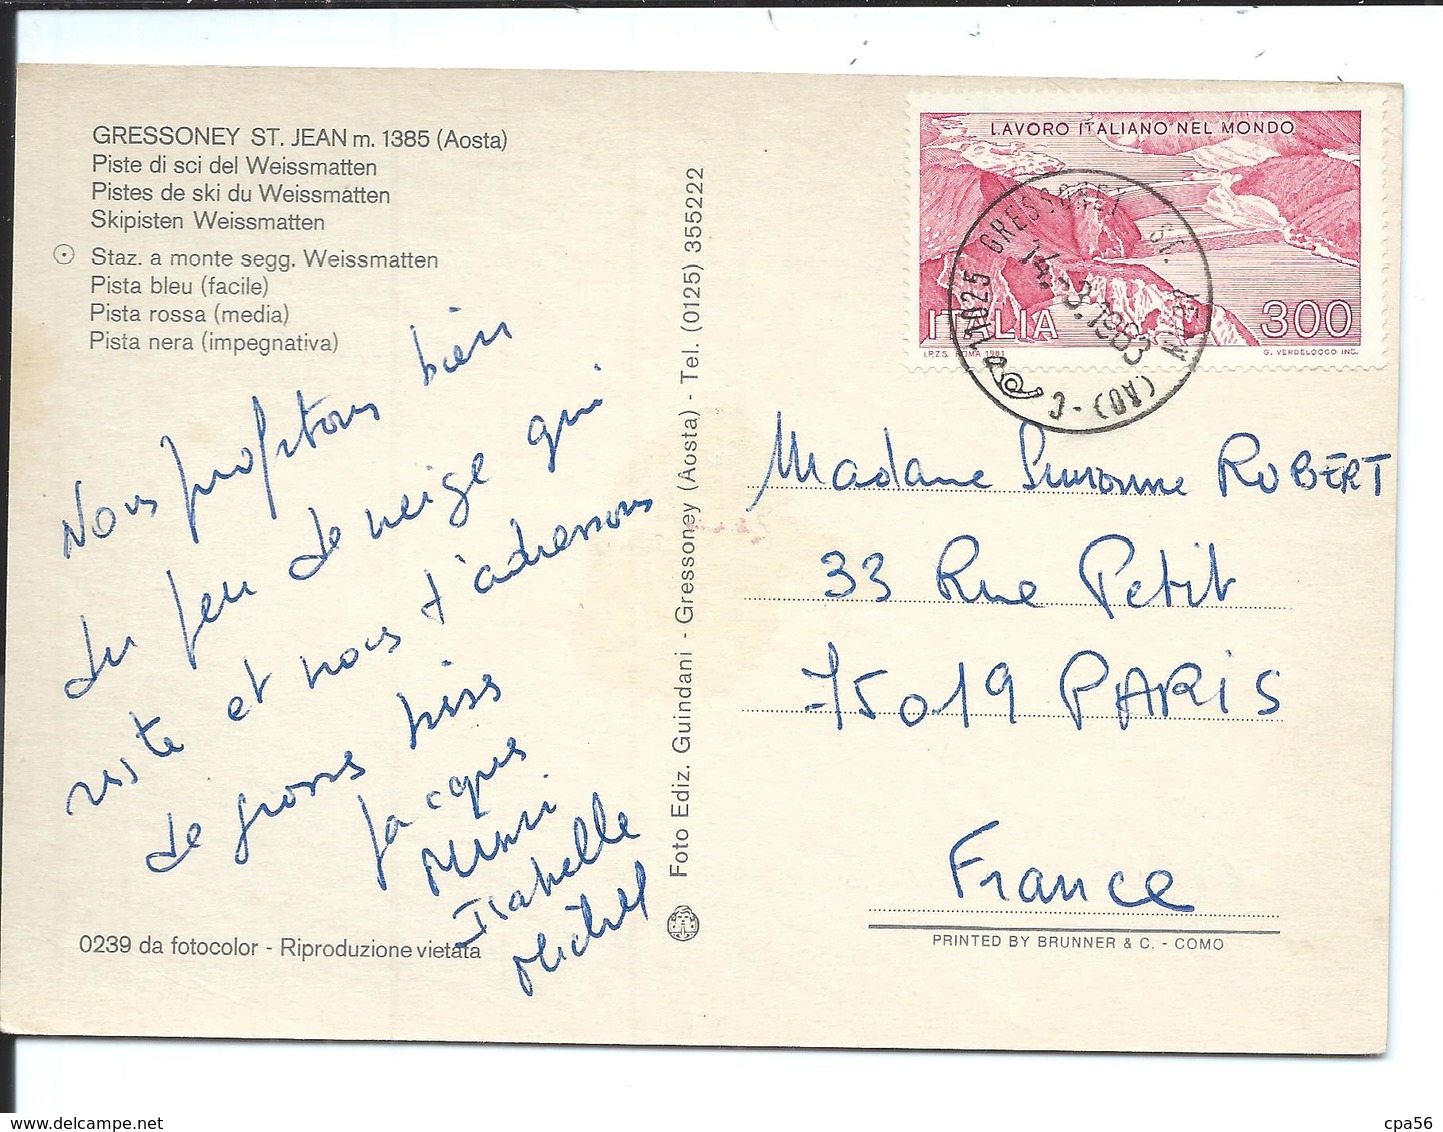 GRESSONEY ST. JEAN m. 1385 (Aosta)
Piste di sci del Weissmatten
Pistes de ski du Weissmatten
Skipisten Weissmatten
Staz. a monte segg. Weissmatten
Pista bleu (facile)
Pista rossa (media)
Pista nera (impegnativa)
Nous profitons bien
du peu de neige qui
reste et nous t'adressons
de grosses bises
Jacques
Mimi
Isabelle
Michel
0239 da fotocolor - Riproduzione vietata
Foto Ediz. Guindani - Gressoney (Aosta) - Tel. (0125) 355222
LAVORO ITALIANO NEL MONDO
ITALIA 300
I.P.Z.S. ROMA 1981 G. VERDELOCCO INC.
11025 GRESSONEY ST. JEAN (AO) - C
14.-3.1983
Madame Simonne ROBERT
33 Rue Petit
75019 PARIS
France
PRINTED BY BRUNNER & C. - COMO
cpa56